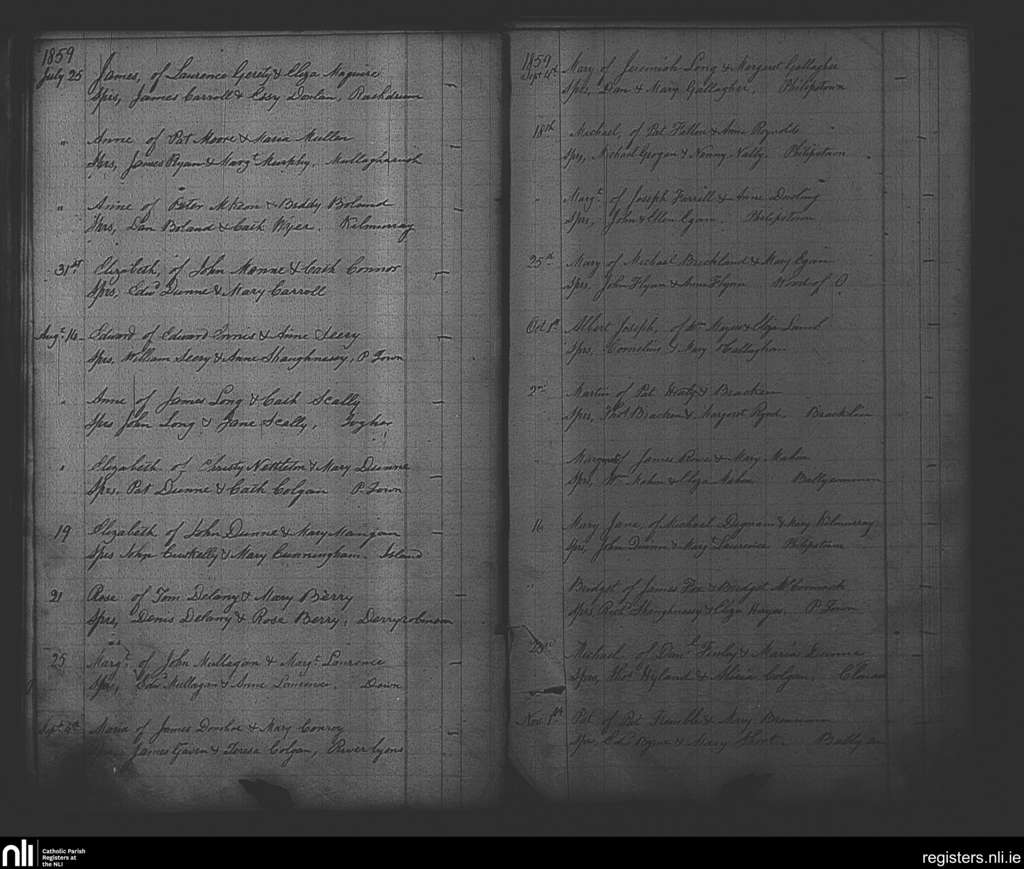 1859
July 25 James, of Laurence Gerety & Eliza Maguire
Sprs, James Carroll & Essy Donlan, Rashdrum
" Anne of Pat Moore & Maria Mullen
Sprs, James Ryan & Margt Murphy. Mullaghanish
" Anne of Peter McKeon & Biddy Boland
Sprs, Dan Boland & Cath Wyer. Kilmurray
31st Elizabeth, of John Manne & Cath Connor
Sprs, Edwd Dunne & Mary Carroll
Augt 14 Edward of Edward Ennis & Anne Seery
Sprs, William Seery & Anne Shaughnessy, P. Town
" Anne of James Long & Cath Scally
Sprs John Long & Jane Scally, Togher
" Elizabeth of Christy Nettleton & Mary Dunne
Sprs. Pat Dunne & Cath Colgan P. Town
19 Elizabeth of John Dunne & Mary Mangan
Sprs John & Mary Cunningham. Island
21 Rose of Tom Delany & Mary Berry
Sprs, Denis Delany & Rose Berry, Derryrobinson
25 Margt of John Mullagan & Margt Laurence
Sprs, Edwd Mullagan & Anne Laurence. Down
Sept 4th Maria of James Donohoe & Mary Conroy
James Gavin & Teresa Colgan, River Lyons
1859
Sept 4th Mary of Jeremiah Long & Margaret Gallagher
Sprs, Dan & Mary Gallagher, Philipstown
18th Michael, of Pat Fallon & Anne Reynolds
Sprs, Michael Grogan & Nanny Nally. Philipstown
" Margt of Joseph Farrell & Anne Dowling
Sprs, John & Ellen Egan. Philipstown
25th Mary of Michael Brickland & Mary Egan
Sprs, John Flynn & Anne Flynn Wood of O
Oct 1st Albert Joseph, of Wm & Eliza
Sprs, Cornelius & Mary Callaghan
2nd Martin of Pat Healy & Bracken
Sprs, Thos Bracken & Margaret Ryan. Bracklin
" Margaret of James Rowe & Mary Mahon
Sprs, Wm Mahon & Eliza Mahon
16 Mary Jane, of Michael Dignam & Mary Kilmurray
Sprs, John Dunne & Margt Laurence Philipstown
" Bridget of James Fox & Bridget McCormack
Sprs, Shaughnessy & Eliza Hayes. P. Town
23rd Michael of Danl Finlay & Maria Dunne
Sprs, Thos Hyland & Alicia Colgan, Clonan
Nov 1st Pat of Pat & Mary Brennan
Sprs, Edwd Byrne & Mary
nli
Catholic Parish
Registers at
the NLI
registers.nli.ie